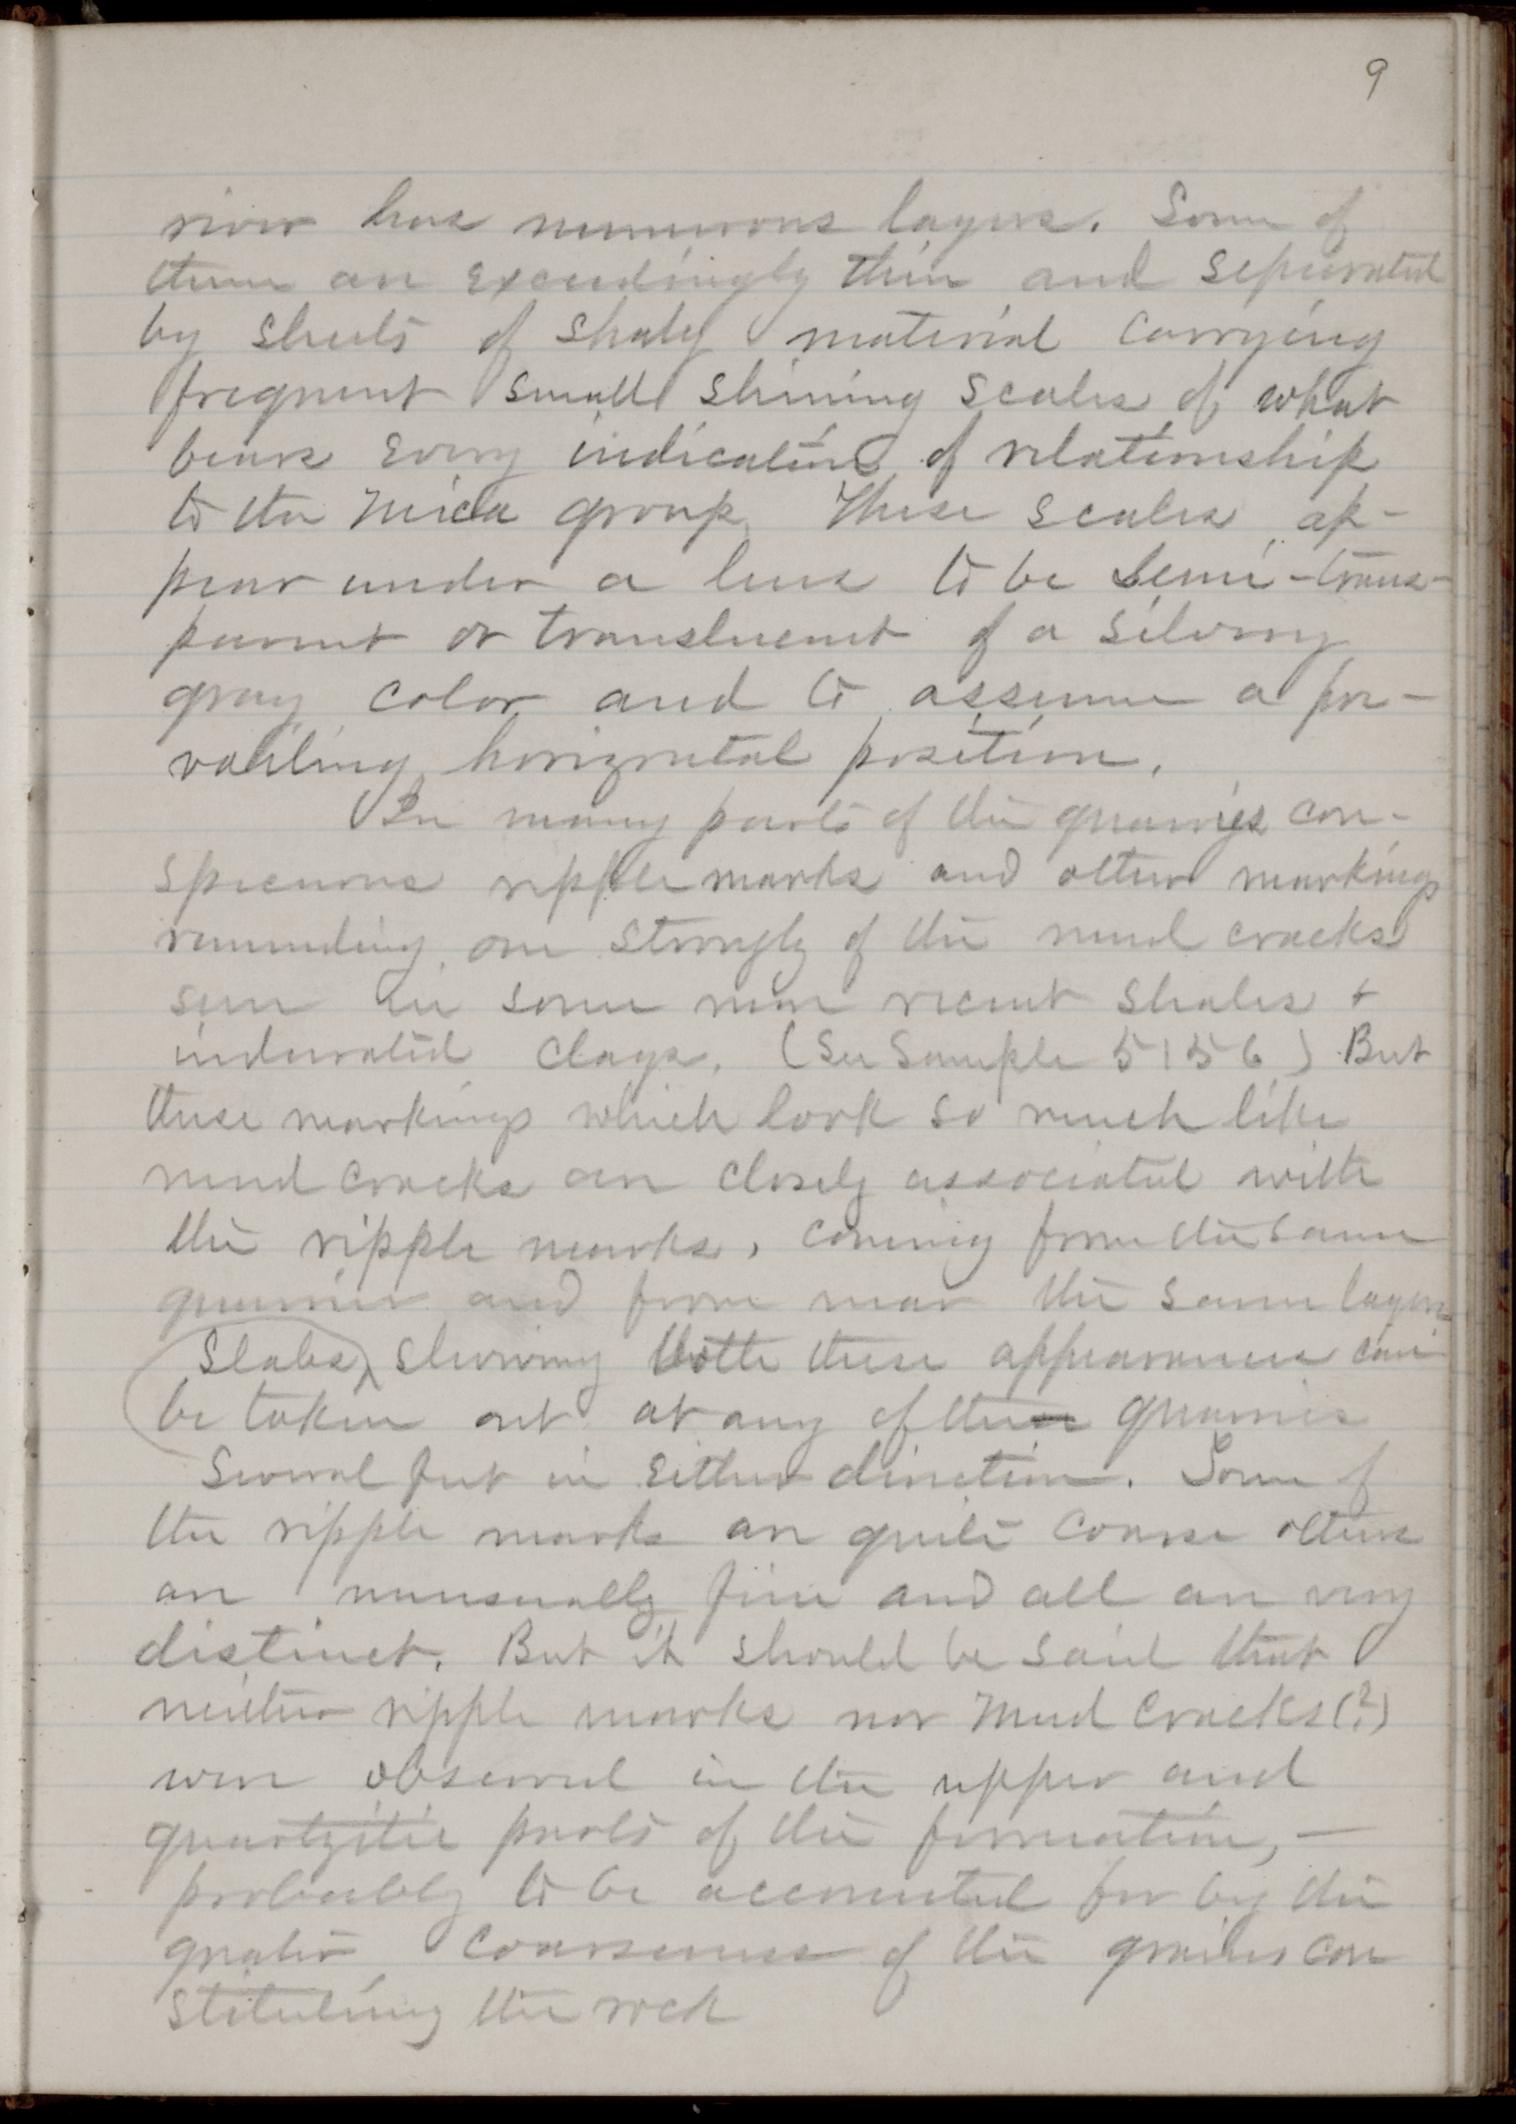 9
river has numerous layers. Some of
them are exceedingly thin and separated
by sheets of shaly material carrying
frequent small shining scales of what
bears every indication of relationship
to the Mica group. These scales ap-
pear under a lens to be semi-trans-
parent or translucent of a silvery
gray color and to assume a pre-
vailing horizontal position.
In many parts of the quarries con-
spicuous ripple marks and other markings
reminding one strongly of the mud cracks
seen in some more recent shales +
indurated clays. (See Sample 5156) But
these markings which look so much like
mud cracks are closely associated with
the ripple marks, coming from the same
quarries and from near the same layers
Slabs showing both these appearances can
be taken out at any of these quarries
Several feet in either direction. Some of
the ripple marks are quite coarse others
are unusually fine and all are very
distinct. But it should be said that
neither ripple marks nor mud cracks (?)
were observed in the upper and
quartzitic parts of the formation, —
probably to be accounted for by the
greater coarseness of the grains con
stituting the rock